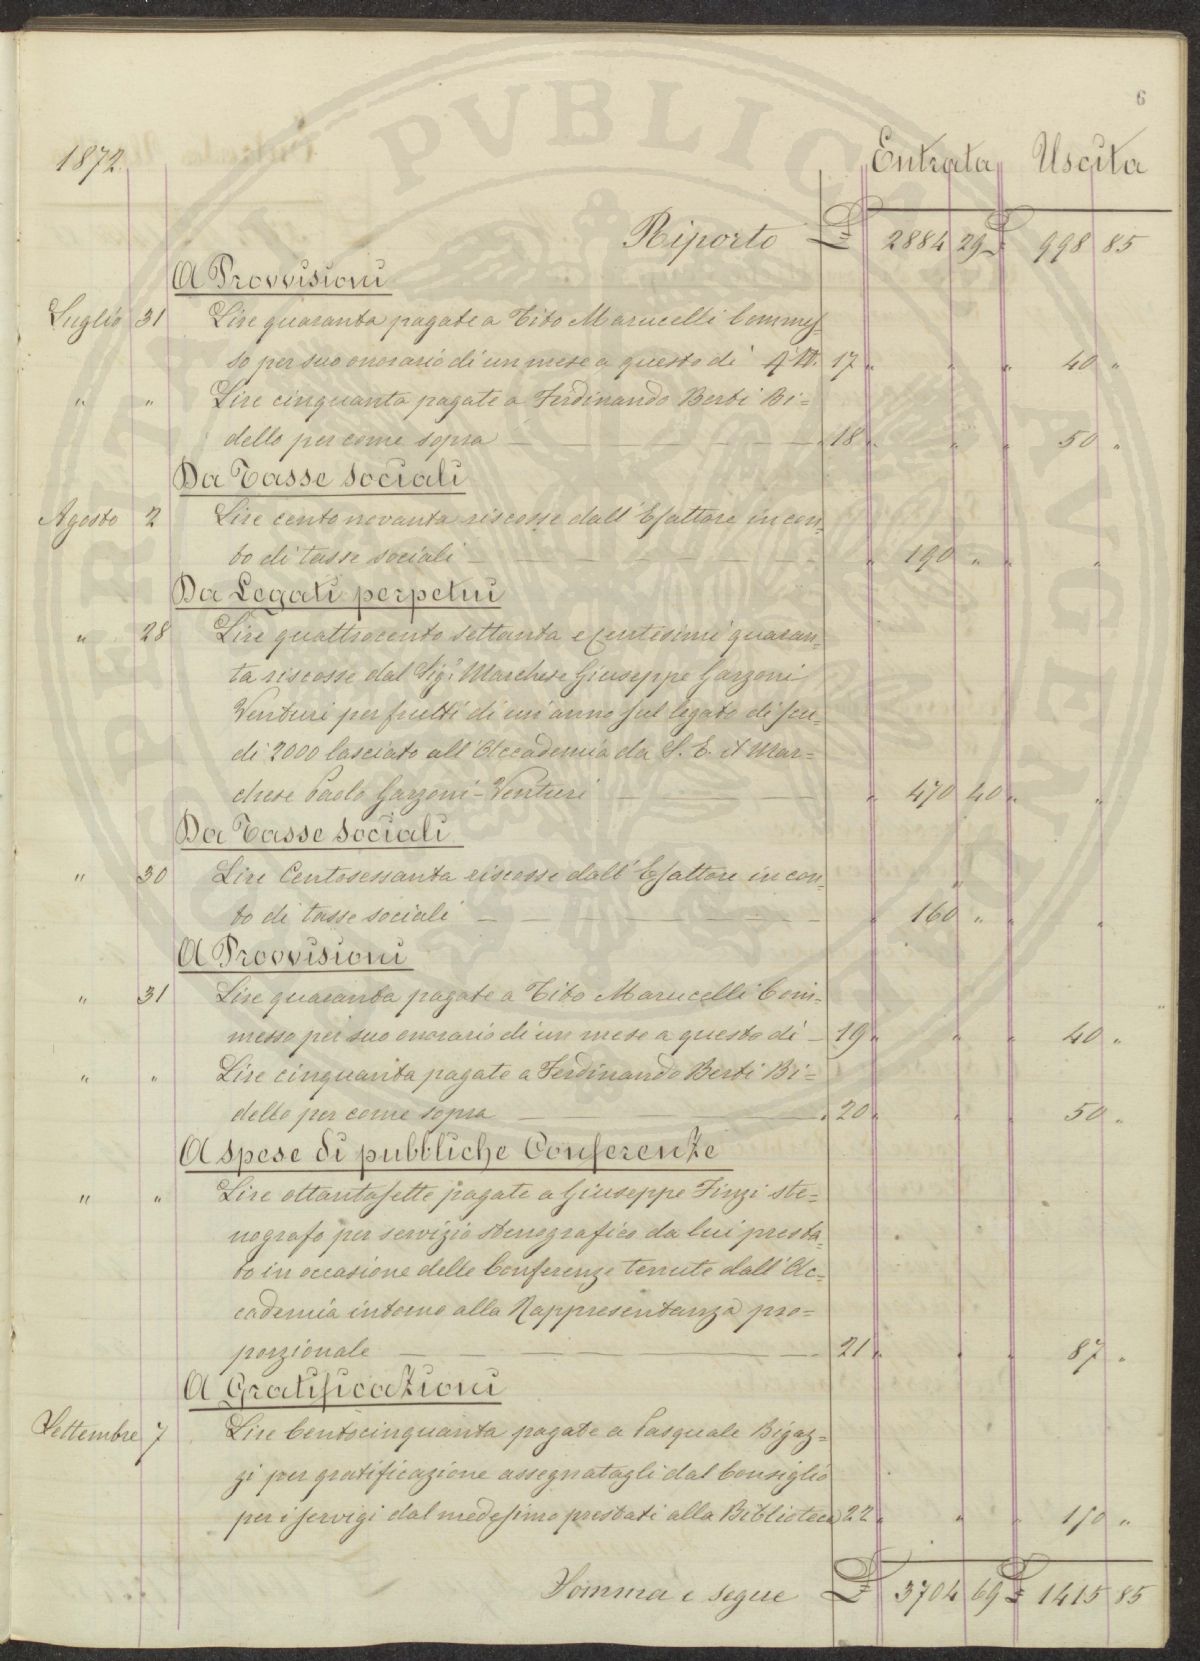 6
1872. Entrata Uscita
Riporto £ 2884 29 £ 998 85
A Provvisioni
Luglio 31 Lire quaranta pagate a Tito Marucelli Commes-
so per suo onorario di un mese a questo dì 17 " " " 40 "
" " Lire cinquanta pagate a Ferdinando Berti Bi=
dello per come sopra — 18 " " " 50 "
Da Tasse sociali
Agosto 2 Lire cento novanta riscosse dall'Esattore in con-
to di tasse sociali — " 190 " " "
Da Legati perpetui
" 28 Lire quattrocento settanta e Centesimi quaran-
ta riscosse dal Sigr. Marchese Giuseppe Garzoni
Venturi per frutti di un anno sul legato di scu-
di 2000 lasciato all'Accademia da S. E. il Mar=
chese Paolo Garzoni-Venturi — " 470 40 " "
Da Tasse sociali
" 30 Lire Centosessanta riscosse dall'Esattore in con-
to di tasse sociali — " 160 " " "
A Provvisioni
" 31 Lire quaranta pagate a Tito Marucelli Com-
messo per suo onorario di un mese a questo dì — 19 " " " 40 "
" " Lire cinquanta pagate a Ferdinando Berti Bi=
dello per come sopra — 20 " " " 50 "
A spese di pubbliche Conferenze
" " Lire ottantasette pagate a Giuseppe Finzi ste=
nografo per servizio stenografico da lui presta-
to in occasione delle Conferenze tenute dall'Ac=
cademia intorno alla Rappresentanza pro=
porzionale — 21 " " " 87 "
A Gratificazioni
Settembre 7 Lire Centocinquanta pagate a Pasquale Bigaz=
zi per gratificazione assegnatagli dal Consiglio
per i servigi dal medesimo prestati alla Biblioteca 22 " " " 150 "
Somma e segue £ 3704 69 £ 1415 85